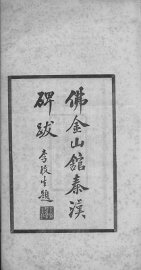 佛金山館秦漢
碑跋
李放生題